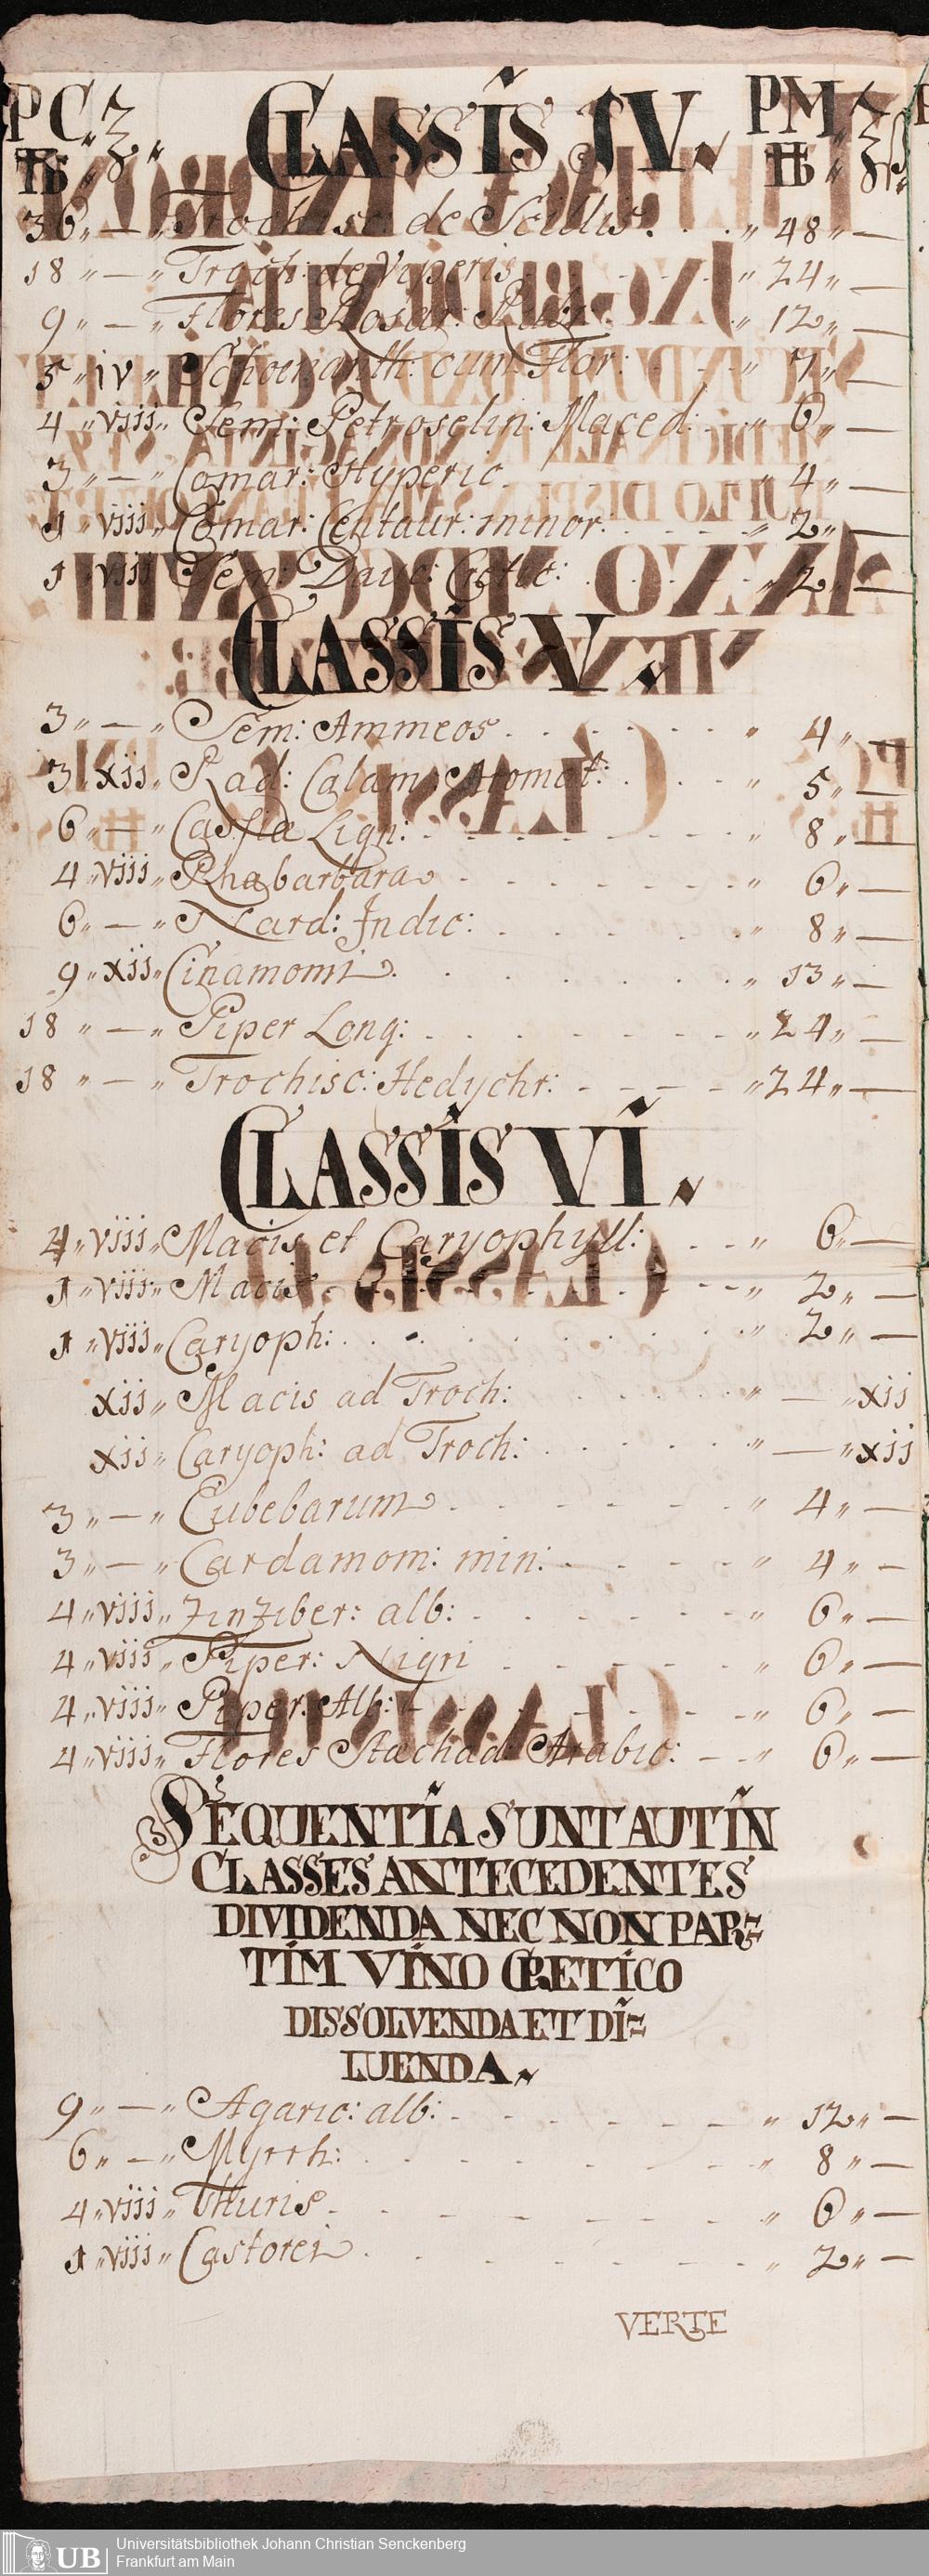 PC. ʒ CLASSIS IV. PM ʒ
℔ ℔
36 „ — „ Trochisc: de Scillis. . . . „ 48 „ —
18 „ — „ Troch: de Viperis . . . . „ 24 „ —
9 „ — „ Flores Rosar: Rubr: . . . „ 12 „ —
5 „ iv „ Schoenanth: cum Flor: . . . „ 7 „ —
4 „ viij „ Sem: Petroselin: Maced: . . „ 6 „ —
3 „ — „ Comar: Hyperic . . . . „ 4 „ —
1 „ viij „ Comar: Centaur: minor: . . . „ 2 „ —
1 „ viij „ Sem: Dauc: Cretic: . . . . „ 2 „ —
CLASSIS V.
3 „ — „ Sem: Ammeos . . . . . . „ 4 „ —
3 „ xij „ Rad: Calam: Aromat: . . . „ 5 „ —
6 „ — „ Cassiæ Lign: . . . . . „ 8 „ —
4 „ viij „ Rhabarbara . . . . . . „ 6 „ —
6 „ — „ Nard: Indic: . . . . . „ 8 „ —
9 „ xij „ Cin̄amomi . . . . . . „ 13 „ —
18 „ — „ Piper Long: . . . . . . „ 24 „ —
18 „ — „ Trochisc: Hedychr: - - - - „ 24 „ —
CLASSIS VI.
4 „ viij „ Macis et Caryophyll: . . - „ 6 „ —
1 „ viij „ Macis . . . . . . . „ 2 „ —
1 „ viij „ Caryoph: . . . . . . . „ 2 „ —
xij „ Macis ad Troch: . . . . „ — „ xij
xij „ Caryoph: ad Troch: . . . . „ — „ xij
3 „ — „ Cubebarum . . . . . „ 4 „ —
3 „ — „ Cardamom: min: . . . . „ 4 „ —
4 „ viij „ Zinziber: alb: . . . . . „ 6 „ —
4 „ viij „ Piper: Nigri . . . . . „ 6 „ —
4 „ viij „ Piper: Alb: . . . . . . „ 6 „ —
4 „ viij „ Flores Stachad: Arabic: - - „ 6 „ —
SEQUENTIA SUNT AUT IN
CLASSES ANTECEDENTES
DIVIDENDA NEC NON PAR=
TIM VINO CRETICO
DISSOLVENDA ET DI=
LUENDA.
9 „ — „ Agaric: alb: . . . . . . „ 12 „ —
6 „ — „ Myrrh: . . . . . . . „ 8 „ —
4 „ viij „ Thuris . . . . . . . „ 6 „ —
1 „ viij „ Castorei . . . . . . . „ 2 „ —
VERTE
UB Universitätsbibliothek Johann Christian Senckenberg
Frankfurt am Main